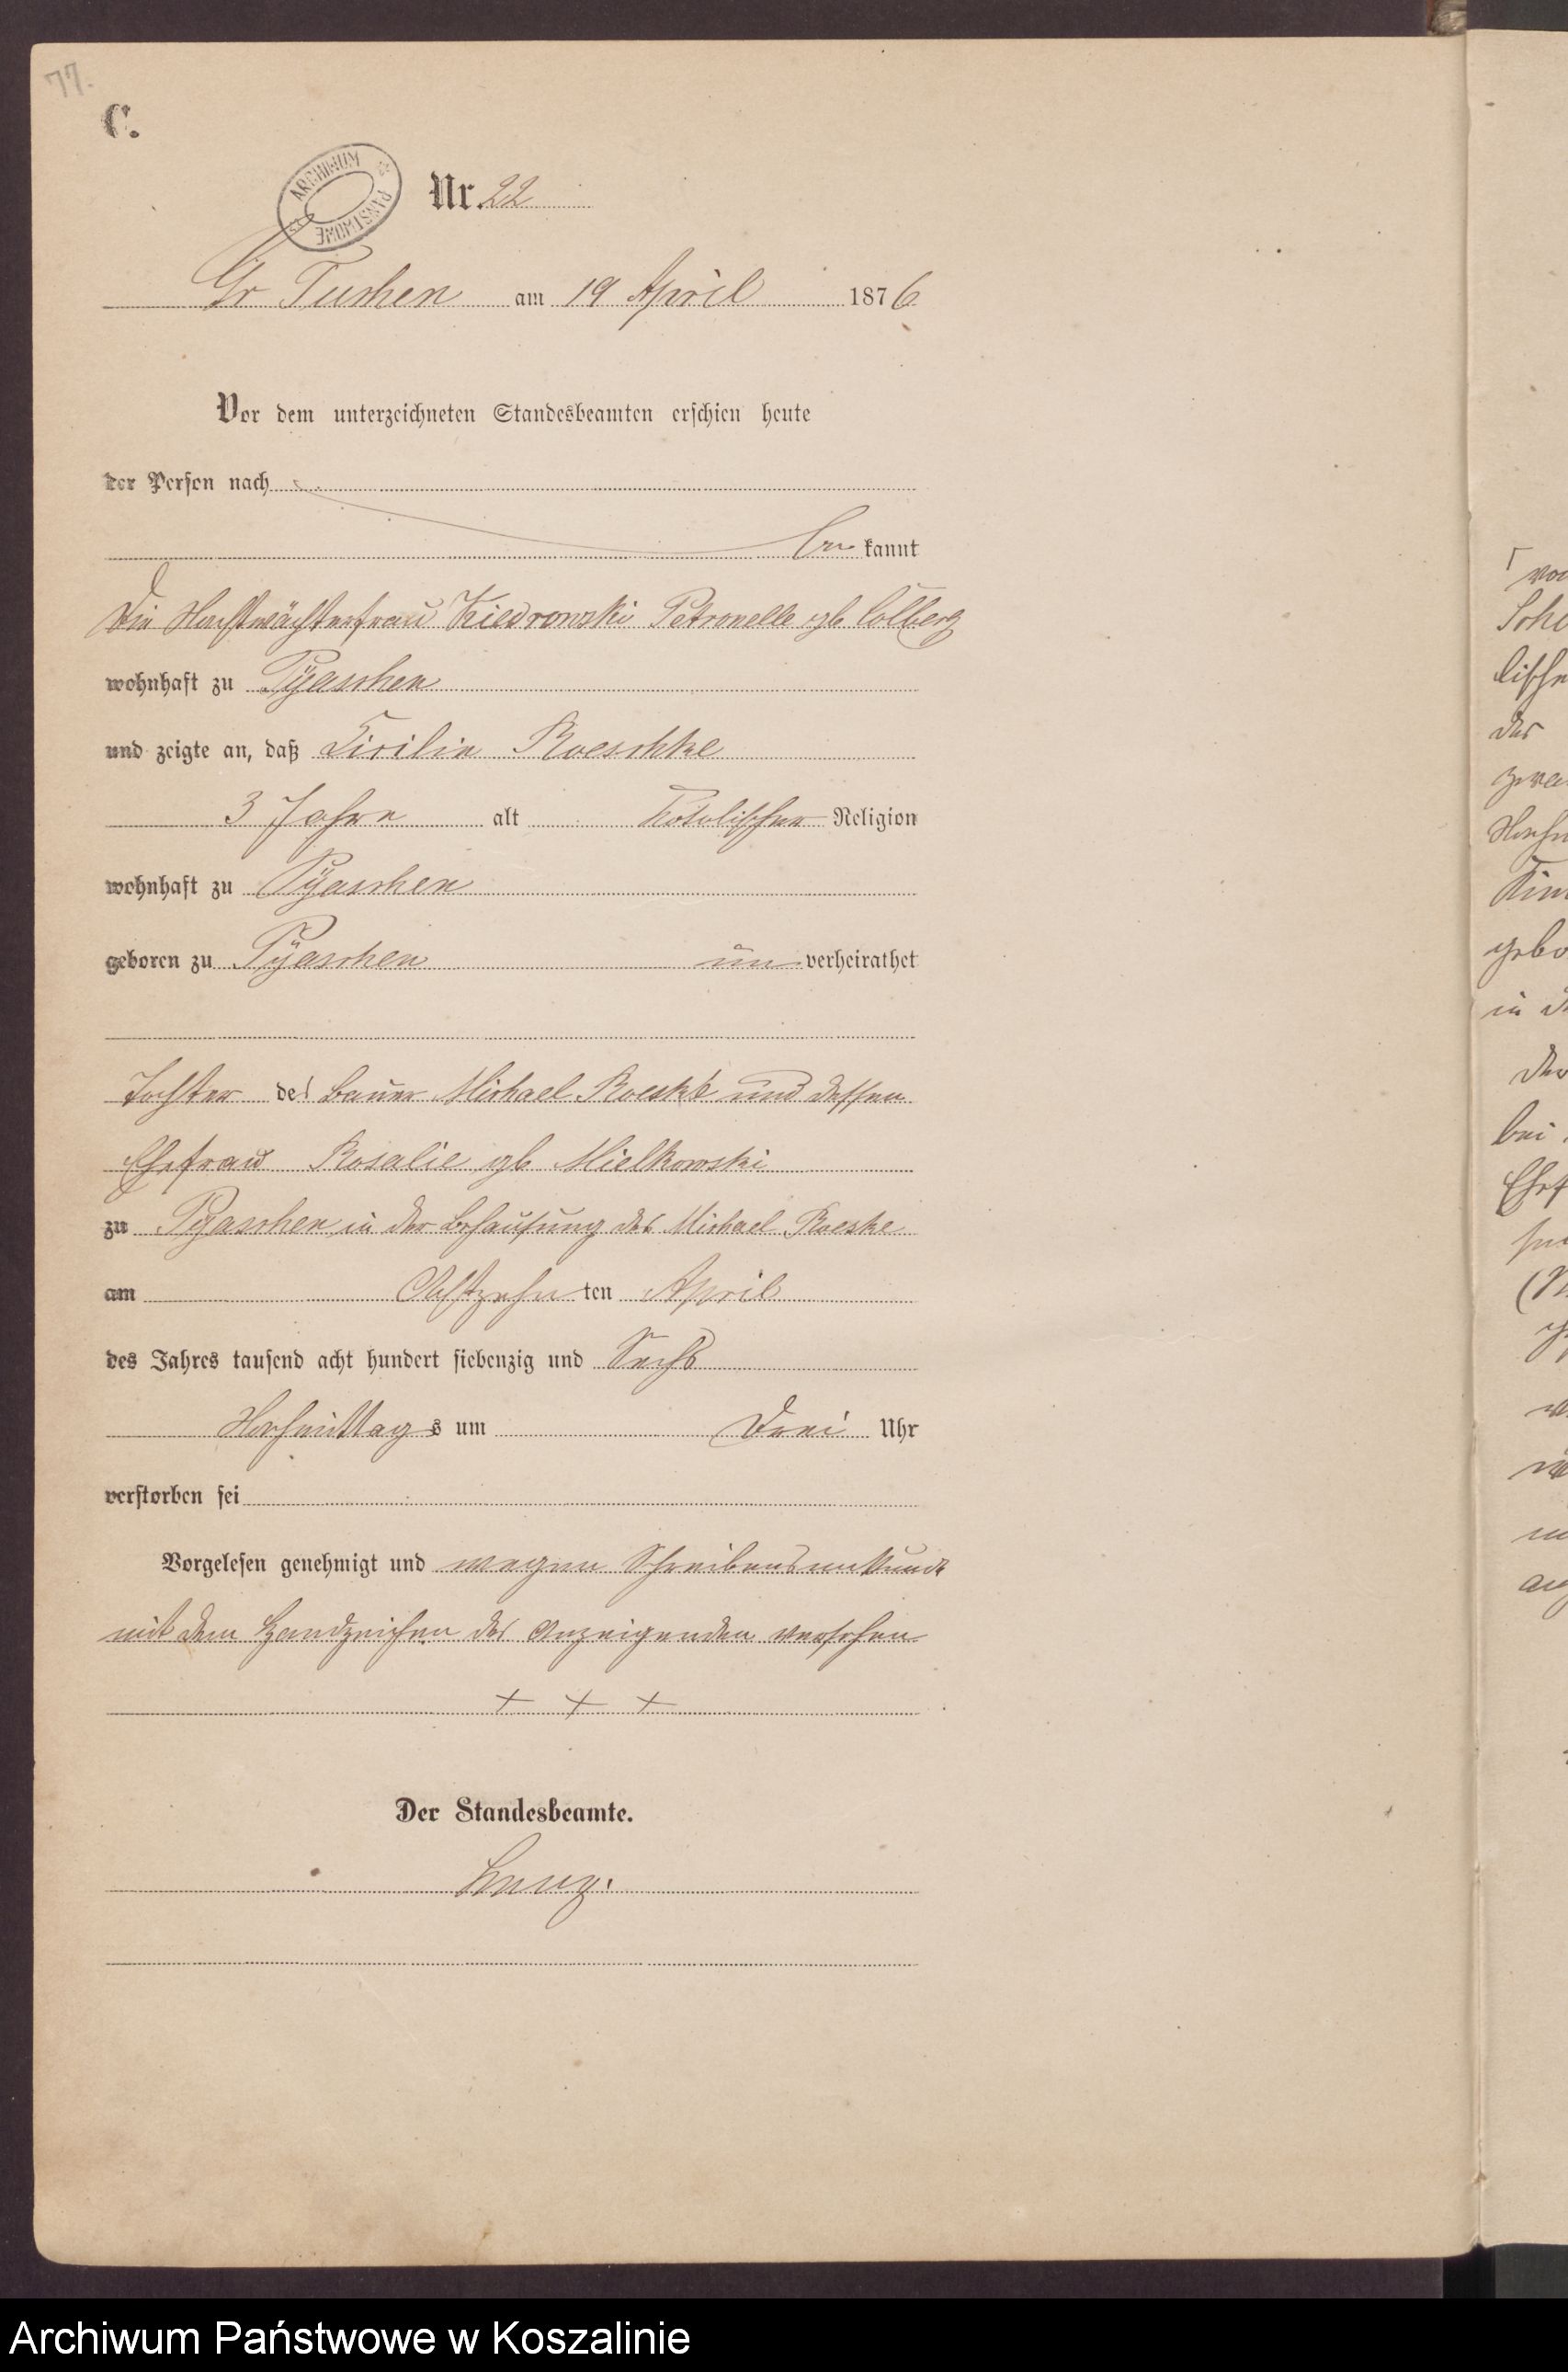 77.
C.
ARCHIWUM PAŃSTWOWE
Nr. 22
Gr Tuchen am 19 April 1876
Vor dem unterzeichneten Standesbeamten erschien heute
der Person nach
be kannt
die Nachtwächterfrau Kiedrowski Petronelle gb Colberg
wohnhaft zu Pyaschen
und zeigte an, daß Cicilie Roeschke
3 Jahre alt katolischer Religion
wohnhaft zu Pyaschen
geboren zu Pyaschen un verheirathet
Tochter des Bauer Michael Roeske und dessen
Ehefrau Rosalie gb Mielkowski
zu Pyaschen in der Behausung des Michael Roeske
am Achtzehn ten April
des Jahres tausend acht hundert siebenzig und Sechs
Nachmittag s um Drei Uhr
verstorben sei
Vorgelesen genehmigt und wegen Schreibensunkunde
mit dem Handzeichen der Anzeigenden versehen
+ + +
Der Standesbeamte.
in
bei
Archiwum Państwowe w Koszalinie